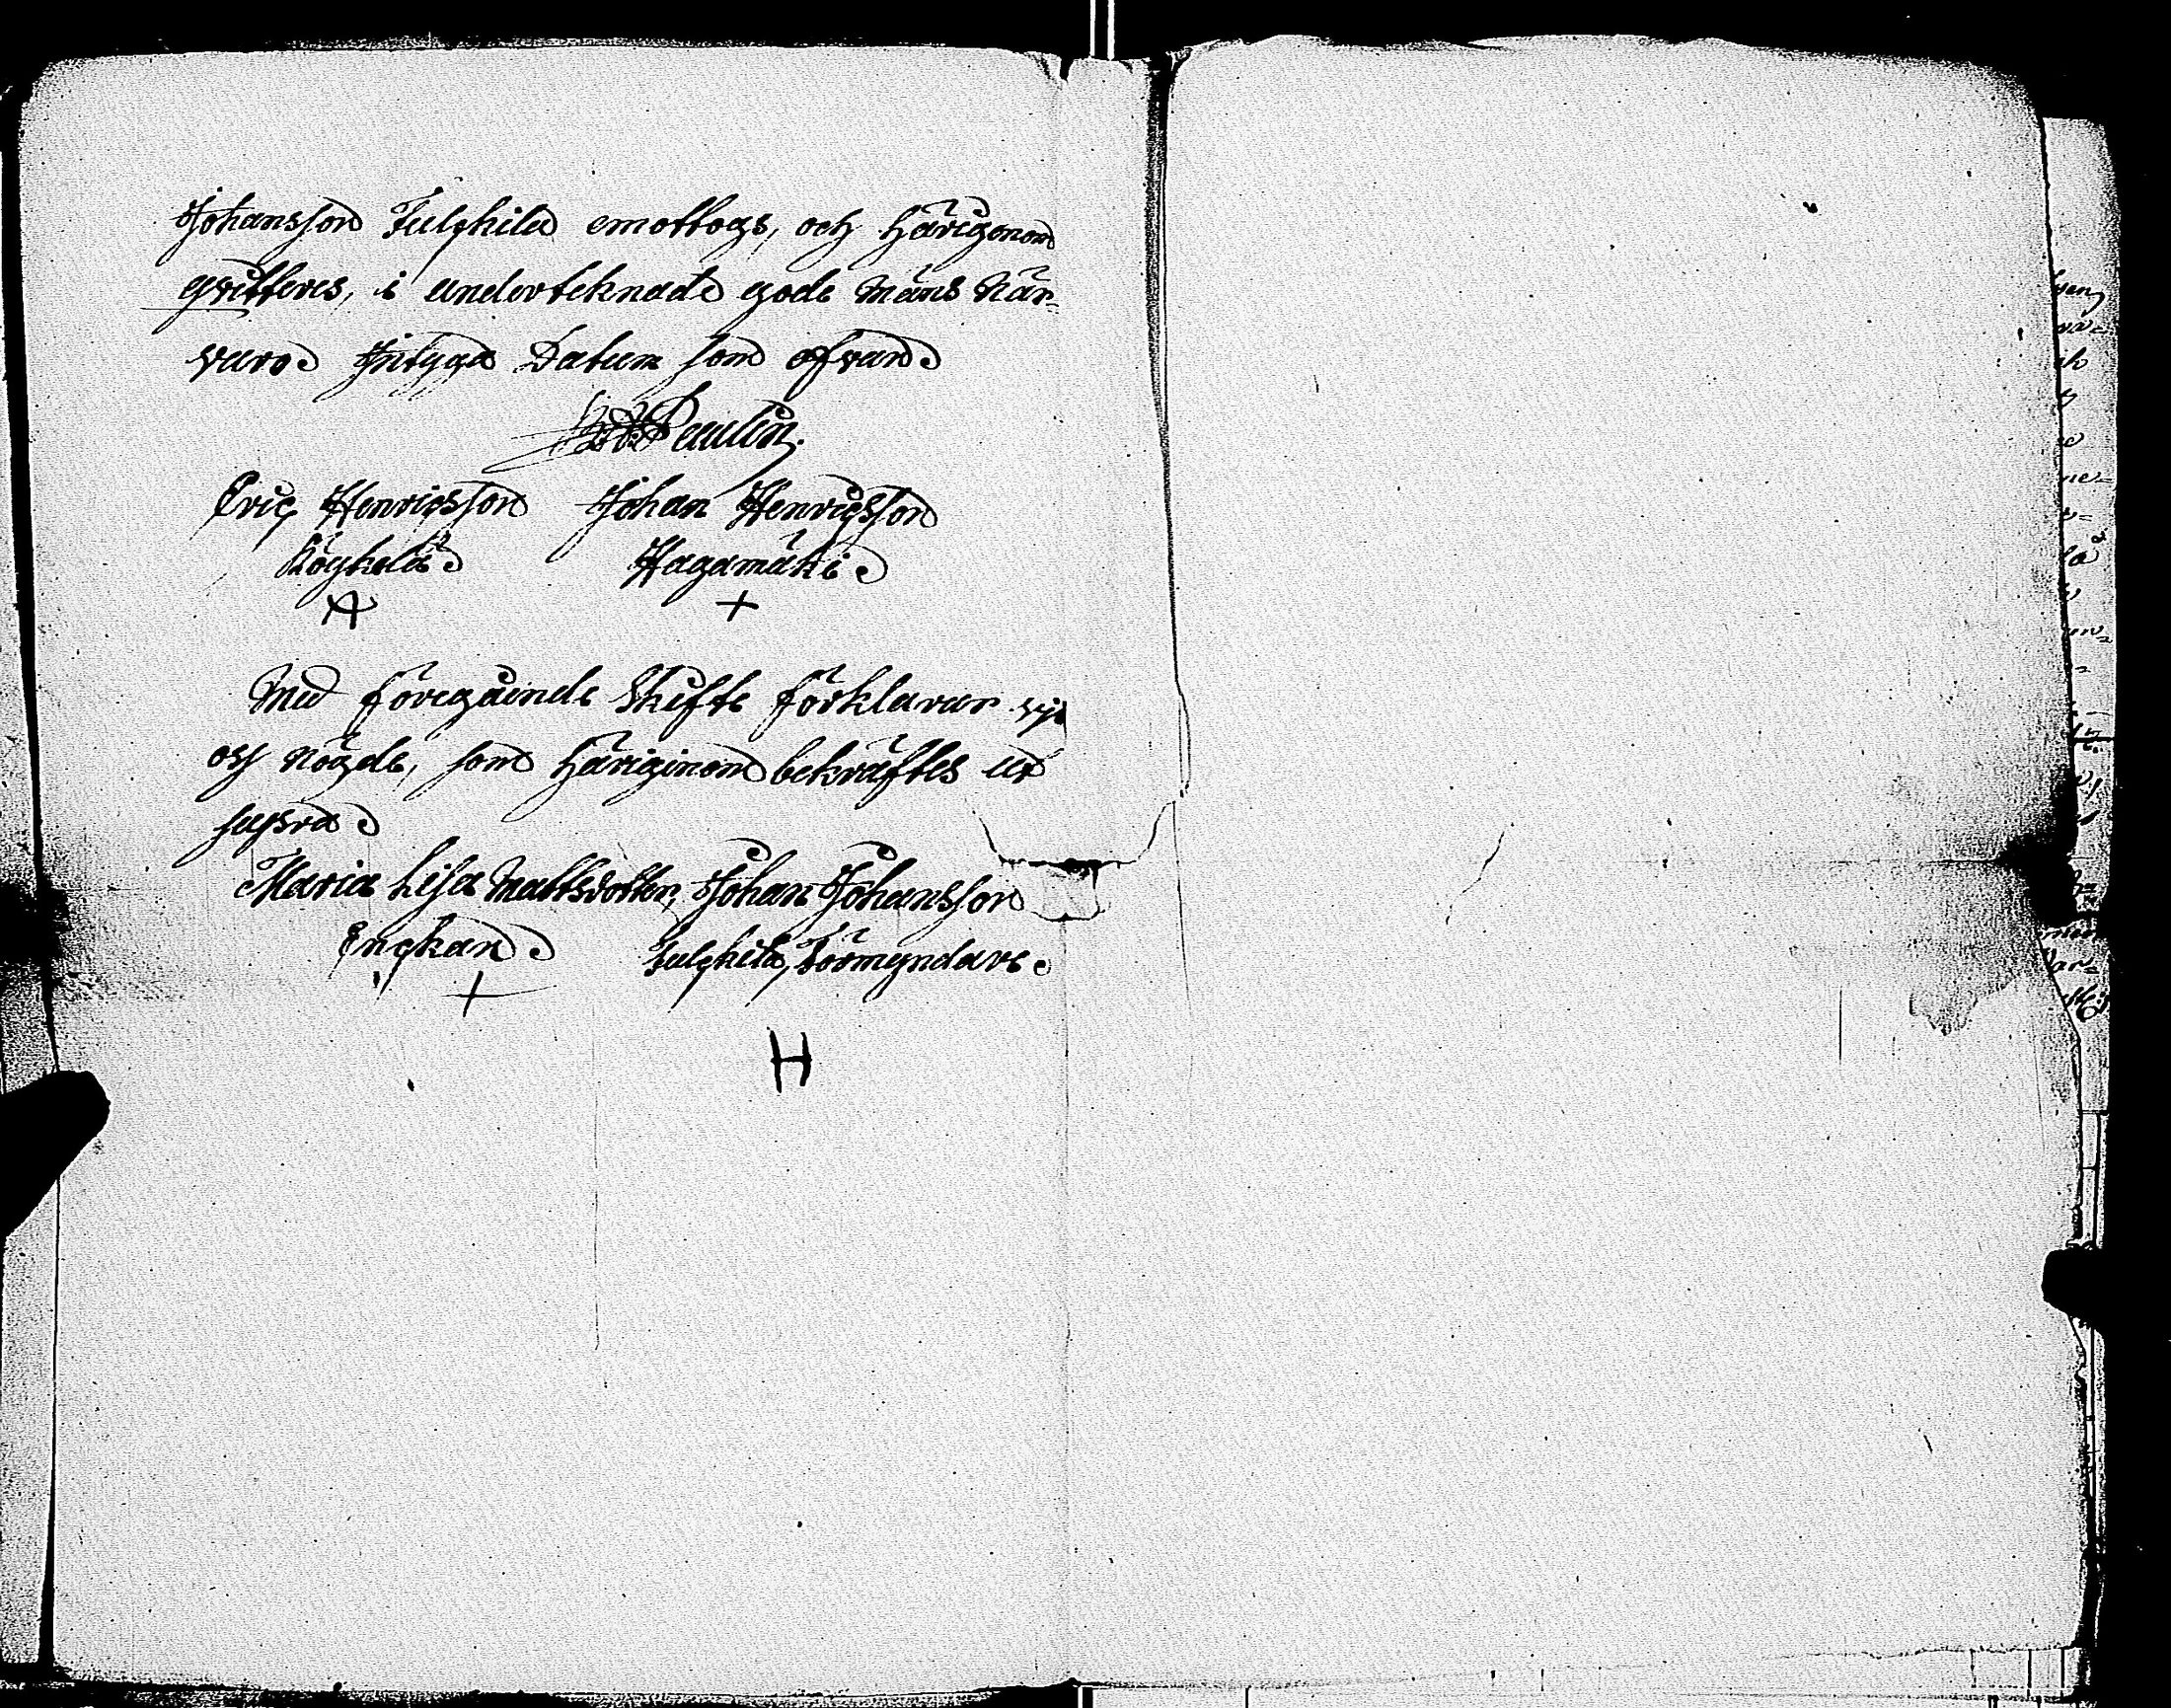 Johansson Julkila emottogs, och härigenom
qvitteres, i undertecknade gode Mäns När-
varo Intyga Datum som ofvan
Paulin.
Eric Henricsson Johan Henricsson
Köykelä Hagamäki
A +
Med föregående Skifte förklarar vi
oss nögde, som härigenom bekräftes ut
supra
Maria Lisa Mattsdotter, Johan Johansson
Enckan Julkila, Förmyndare
+
H